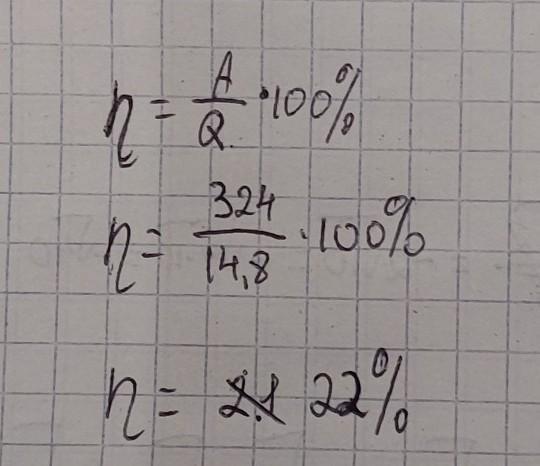 η = A/Q · 100%
η = 324/14,8 · 100%
η = 22%